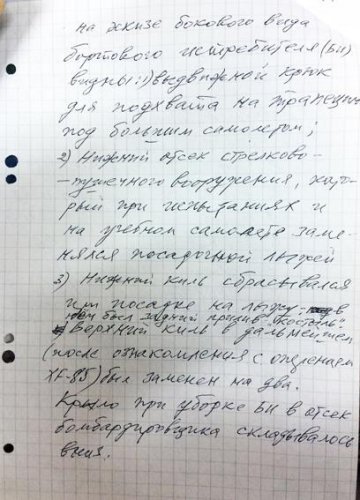 на эскизе бокового вида
бортового истребителя (БИ)
видны: 1) выдвижной крюк
для подхвата на трапецию
под большим самолетом;
2) Нижний отсек стрелково-
-пушечного вооружения, кото-
рый при испытаниях и
на учебном самолете заме-
нялся посадочной лыжей
3) Нижний киль сбрасывался
при посадке на лыжу, в
нем был задний прилив "костыль"
Верхний киль в дальнейшем
(после ознакомления с опытом
XF-85) был заменен на два.
Крыло при уборке БИ в отсек
бомбардировщика складывалось
вниз.